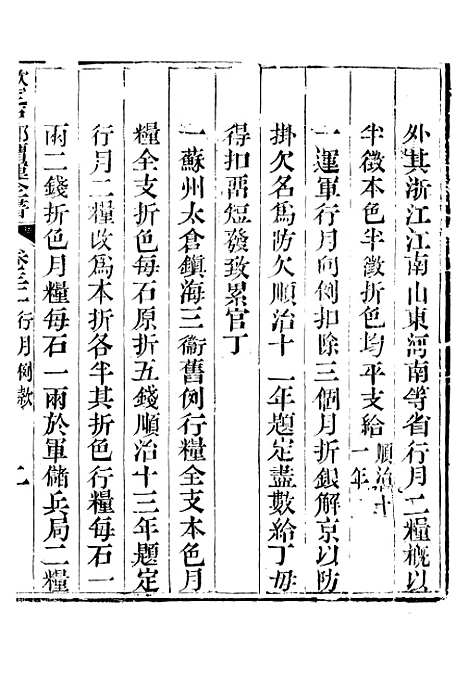 外其浙江江南山東河南等省行月二糧概以
半徵本色半徵折色均平支給順治十一年
一運軍行月向例扣除三個月折銀解京以防
掛欠名爲防欠順治十一年題定盡數給丁毋
得扣畱短發致累官丁
一蘇州太倉鎮海三衞舊例行糧全支本色月
糧全支折色每石原折五錢順治十三年題定
行月二糧改爲本折各半其折色行糧每石一
兩二錢折色月糧每石一兩於軍儲兵局二糧
行月例款